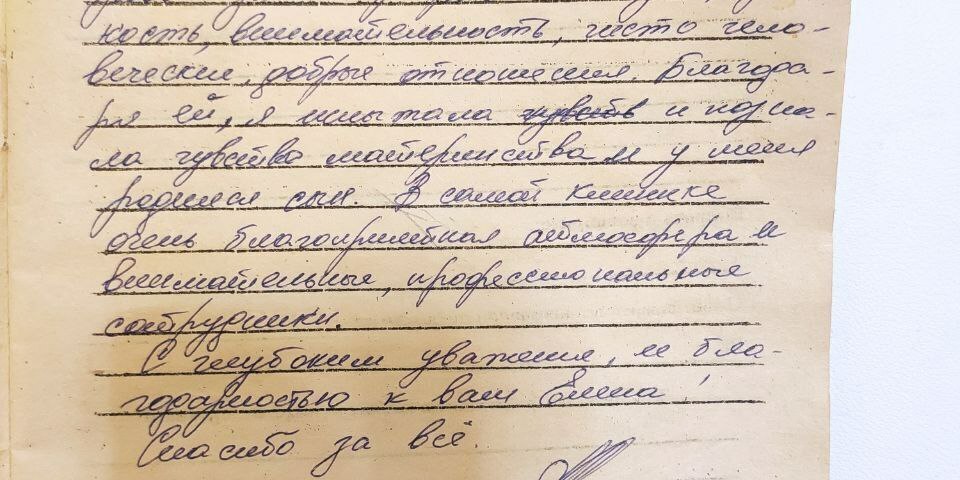 кость, внимательность, чисто чело-
веческие, добрые отношения. Благода-
ря ей, я испытала чувств и позна-
ла чувство материнства и у меня
родился сын. В самой клинике
очень благоприятная атмосфера и
внимательные, профессиональные
сотрудники.
С глубоким уважения, и бла-
годарностью к вам Елена!
Спасибо за всё.